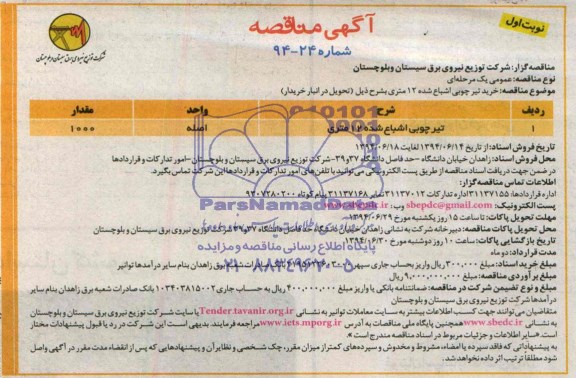 نوبت اول
آگهی مناقصه
شماره ۲۴-۹۴
شرکت توزیع نیروی برق سیستان و بلوچستان
مناقصه گزار: شرکت توزیع نیروی برق سیستان وبلوچستان
نوع مناقصه: عمومی یک مرحله‌ای
موضوع مناقصه: خرید تیر چوبی اشباع شده ۱۲ متری بشرح ذیل (تحویل در انبار خریدار)
ردیف شرح واحد مقدار
۱ تیر چوبی اشباع شده ۱۲ متری اصله ۱۰۰۰
تاریخ فروش اسناد: از تاریخ ۱۳۹۴/۰۶/۱۴ لغایت ۱۳۹۴/۰۶/۱۸
محل فروش اسناد: زاهدان خیابان دانشگاه -حد فاصل دانشگاه ۳۷و۳۹-شرکت توزیع نیروی برق سیستان و بلوچستان -امور تدارکات و قراردادها
در ضمن جهت دریافت اسناد مناقصه از طریق پست الکترونیکی می‌توانید با تلفن‌های امور تدارکات و قراردادها این شرکت تماس بگیرید.
اطلاعات تماس مناقصه گزار:
اداره قراردادها: ۳۱۱۳۷۱۵۵ اداره تدارکات ۳۱۱۳۷۰۱۲ نمابر ۳۱۱۳۷۱۶۸ پیام کوتاه
پست الکترونیک: sbepdc@gmail.com وب: www.sbedc.ir
مهلت تحویل پاکات: تا ساعت ۱۵ روز یکشنبه مورخ ۱۳۹۴/۰۶/۲۹
محل تحویل پاکات مناقصه: دبیرخانه شرکت به نشانی زاهدان خیابان دانشگاه حد فاصل دانشگاه ۳۷و۳۹ شرکت توزیع نیروی برق سیستان و بلوچستان
تاریخ بازگشایی پاکات: ساعت ۱۰ روز دوشنبه مورخ ۱۳۹۴/۰۶/۳۰
مدت قرارداد: دو ماه
مبلغ خرید اسناد: مبلغ ۳۰۰,۰۰۰ ریال واریز بحساب جاری سپهر شعبه برق زاهدان بنام سایر درآمدها توانیر
مبلغ برآوردی مناقصه: مبلغ ۹,۰۰۰,۰۰۰,۰۰۰ ریال
مبلغ و نوع تضمین شرکت در مناقصه: ضمانتنامه بانکی یا واریز مبلغ ۴۰۰,۰۰۰,۰۰۰ ریال به حساب جاری ۱۰۳۴۰۳۸۱۵۰۰۲ بانک صادرات شعبه برق زاهدان بنام سایر
درآمدها شرکت توزیع نیروی برق سیستان و بلوچستان
متقاضیان می توانند جهت کسب اطلاعات بیشتر به سایت معاملات توانیر به نشانی Tender.tavanir.org.ir یا سایت شرکت توزیع نیروی برق سیستان و بلوچستان
به نشانی www.sbedc.ir همچنین پایگاه ملی مناقصات به آدرس www.iets.mporg.ir مراجعه فرمایند. بدیهی است این شرکت در رد یا قبول پیشنهادات مختار
است. «سایر اطلاعات و جزئیات مربوط در اسناد مناقصه مندرج است»
به پیشنهاداتی که فاقد سپرده یا امضاء، مشروط و مخدوش و سپرده‌های کمتر از میزان مقرر، چک شخصی و نظایر آن و پیشنهادهایی که پس از انقضاء مدت مقرر در آگهی واصل
شود مطلقا ترتیب اثر داده نخواهد شد.
ParsNamadData
پایگاه اطلاع رسانی مناقصه و مزایده
۰۲۱-۸۸۳۴۹۶۷۰-۵